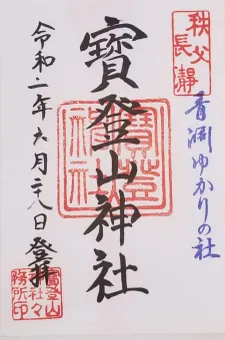 秩父
長瀞
青淵ゆかりの社
寶登山神社
寶登山
神社
令和二年六月二十八日 登拝
寶登山
神社々
務所印